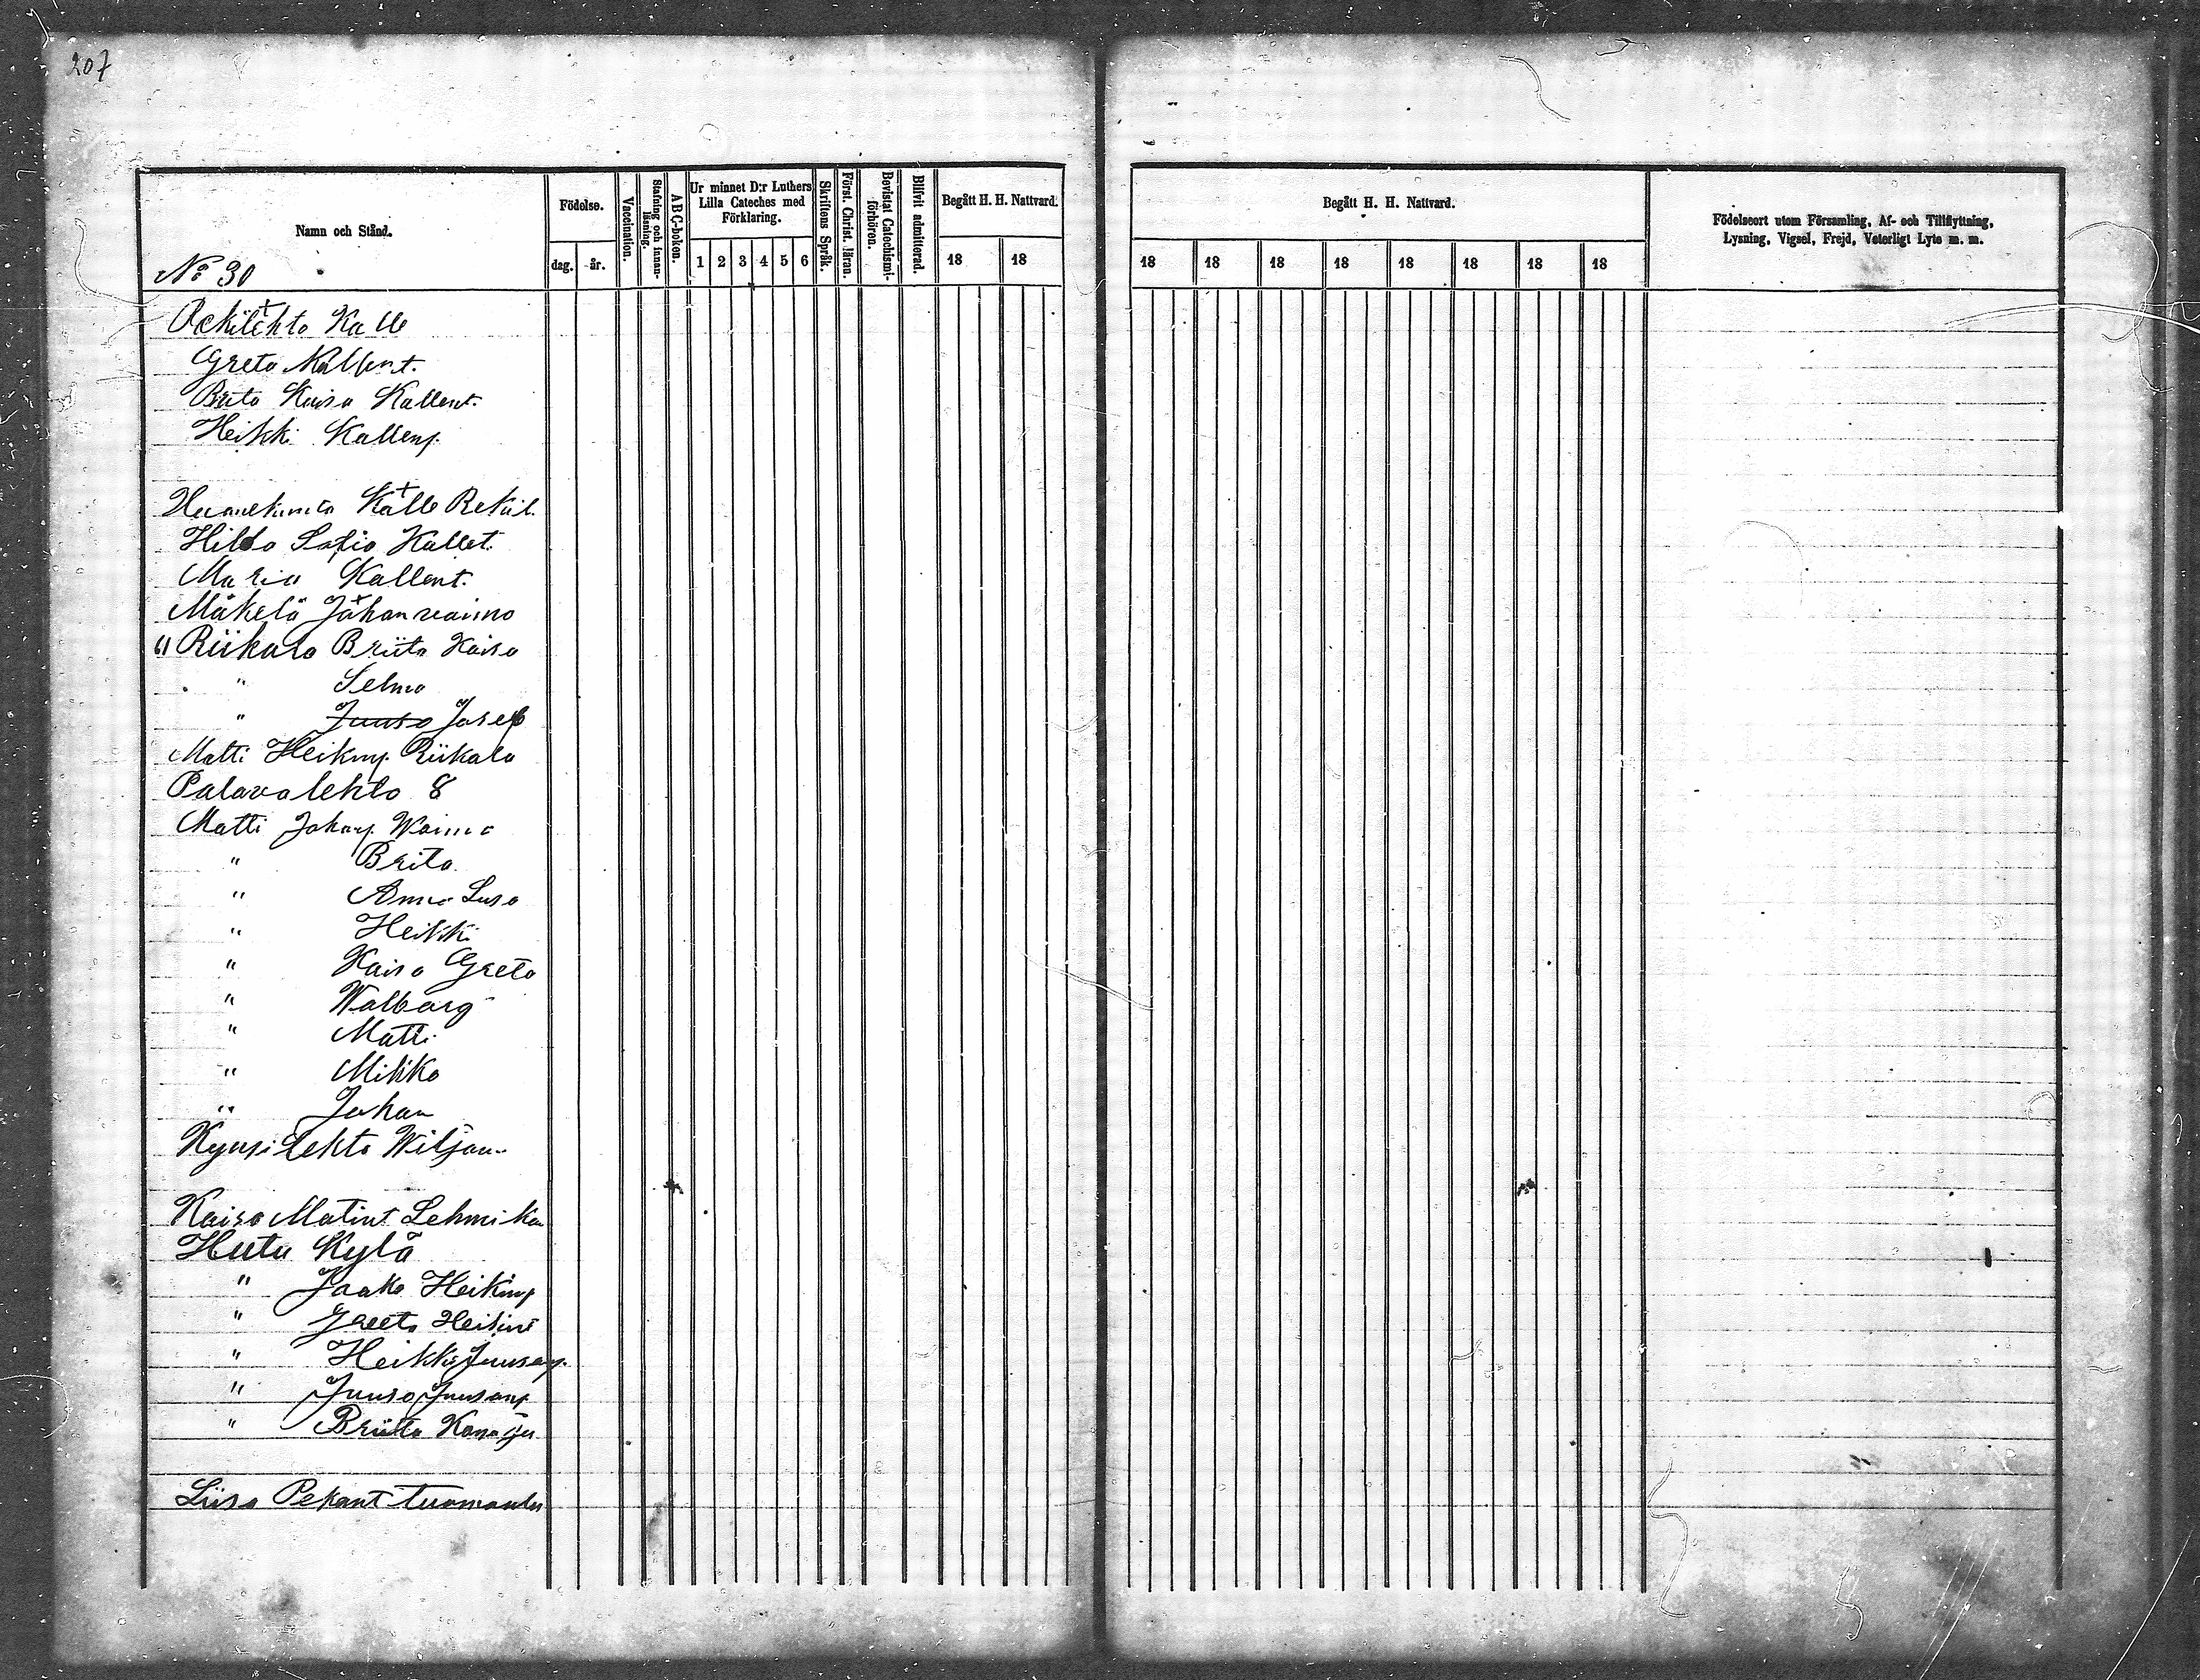 207
Namn och Stånd.
Födelse.
dag. år.
Vaccination.
Stafning och innanläsning.
ABC-boken.
Ur minnet D:r Luthers Lilla Cateches med Förklaring.
1 2 3 4 5 6
Skriftens Språk.
Först. Christ. läran.
Bevistat Catechismi-förhören.
Blifvit admitterad.
Begått H. H. Nattvard.
18 18
Begått H. H. Nattvard.
18 18 18 18 18 18 18 18
Födelseort utom Församling, Af- och Tillflyttning,
Lysning, Vigsel, Frejd, Veterligt Lyte m. m.
No 30
Kalle
Greta Kallent.
Brita Kaisa Kallent.
Heikki Kallenp.
Kalle
Hilda Sofia Kallet.
Maria Kallent.
Mäkelä Johan vaimo
" Riikala Briita Kaisa
" Selma
" Juuso Josef
Matti Heikinp. Riikala
Palavalehto 8
Matti Johanp. Waimo
" Brita
" Anna Lusa
" Heikki
" Kaisa Greta
" Walborg
" Matti
" Mikko
" Johan
Kynsilehto Wiljam
Kaisa Matint Lehmikan
Huta Kylä
" Jaako Heikinp
" Greeta Heikint
" Heikki Juusonp.
" Juuso Juusonp
" Briita
Liisa Pekant